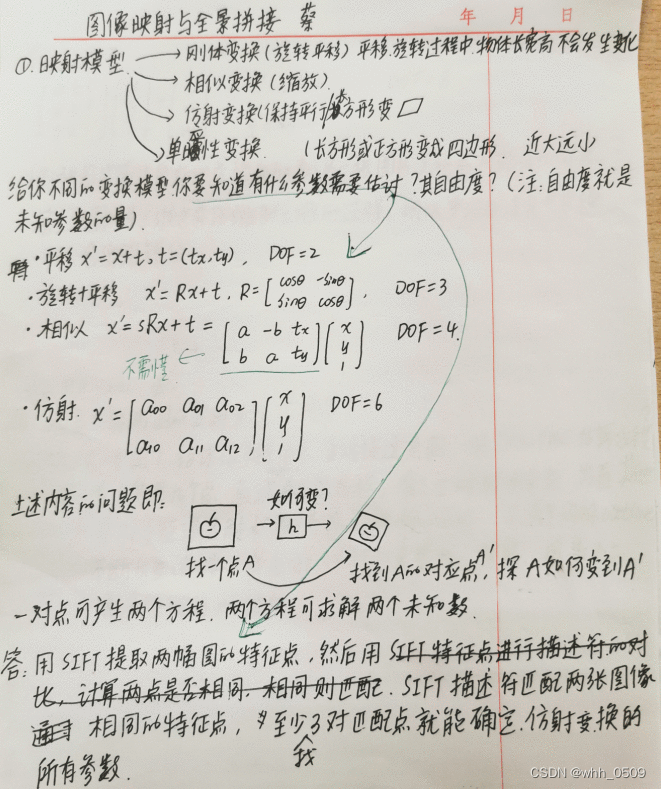 图像映射与全景拼接 蔡
年 月 日
①.映射模型 → 刚体变换(旋转平移)平移.旋转过程中.物体长宽高不会发生变化
→ 相似变换(缩放).
→ 仿射变换(保持平行)方形变▱
→ 单应性变换. (长方形或正方形变成四边形. 近大远小
给你不同的变换模型你要知道有什么参数需要估计?其自由度?(注:自由度就是
未知参数的量).
·平移 x'=x+t, t=(tx,ty), DOF=2
·旋转+平移 x'=Rx+t, R=[cosθ -sinθ
sinθ cosθ], DOF=3
·相似 x'=sRx+t=[a -b tx
b a ty][x
y
1] DOF=4.
不需懂 ←
·仿射. x'=[a00 a01 a02
a10 a11 a12][x
y
1] DOF=6
上述内容的问题即:
如何变?
→ h →
找一个点A
找到A的对应点A', 探A如何变到A'
一对点可产生两个方程. 两个方程可求解两个未知数.
答:用SIFT提取两幅图的特征点,然后用SIFT特征点进行描述符的对
比,计算两点是否相同.相同则匹配. SIFT描述符匹配两张图像
相同的特征点, 至少找3对匹配点就能确定.仿射变换的
所有参数.
CSDN @whh_0509